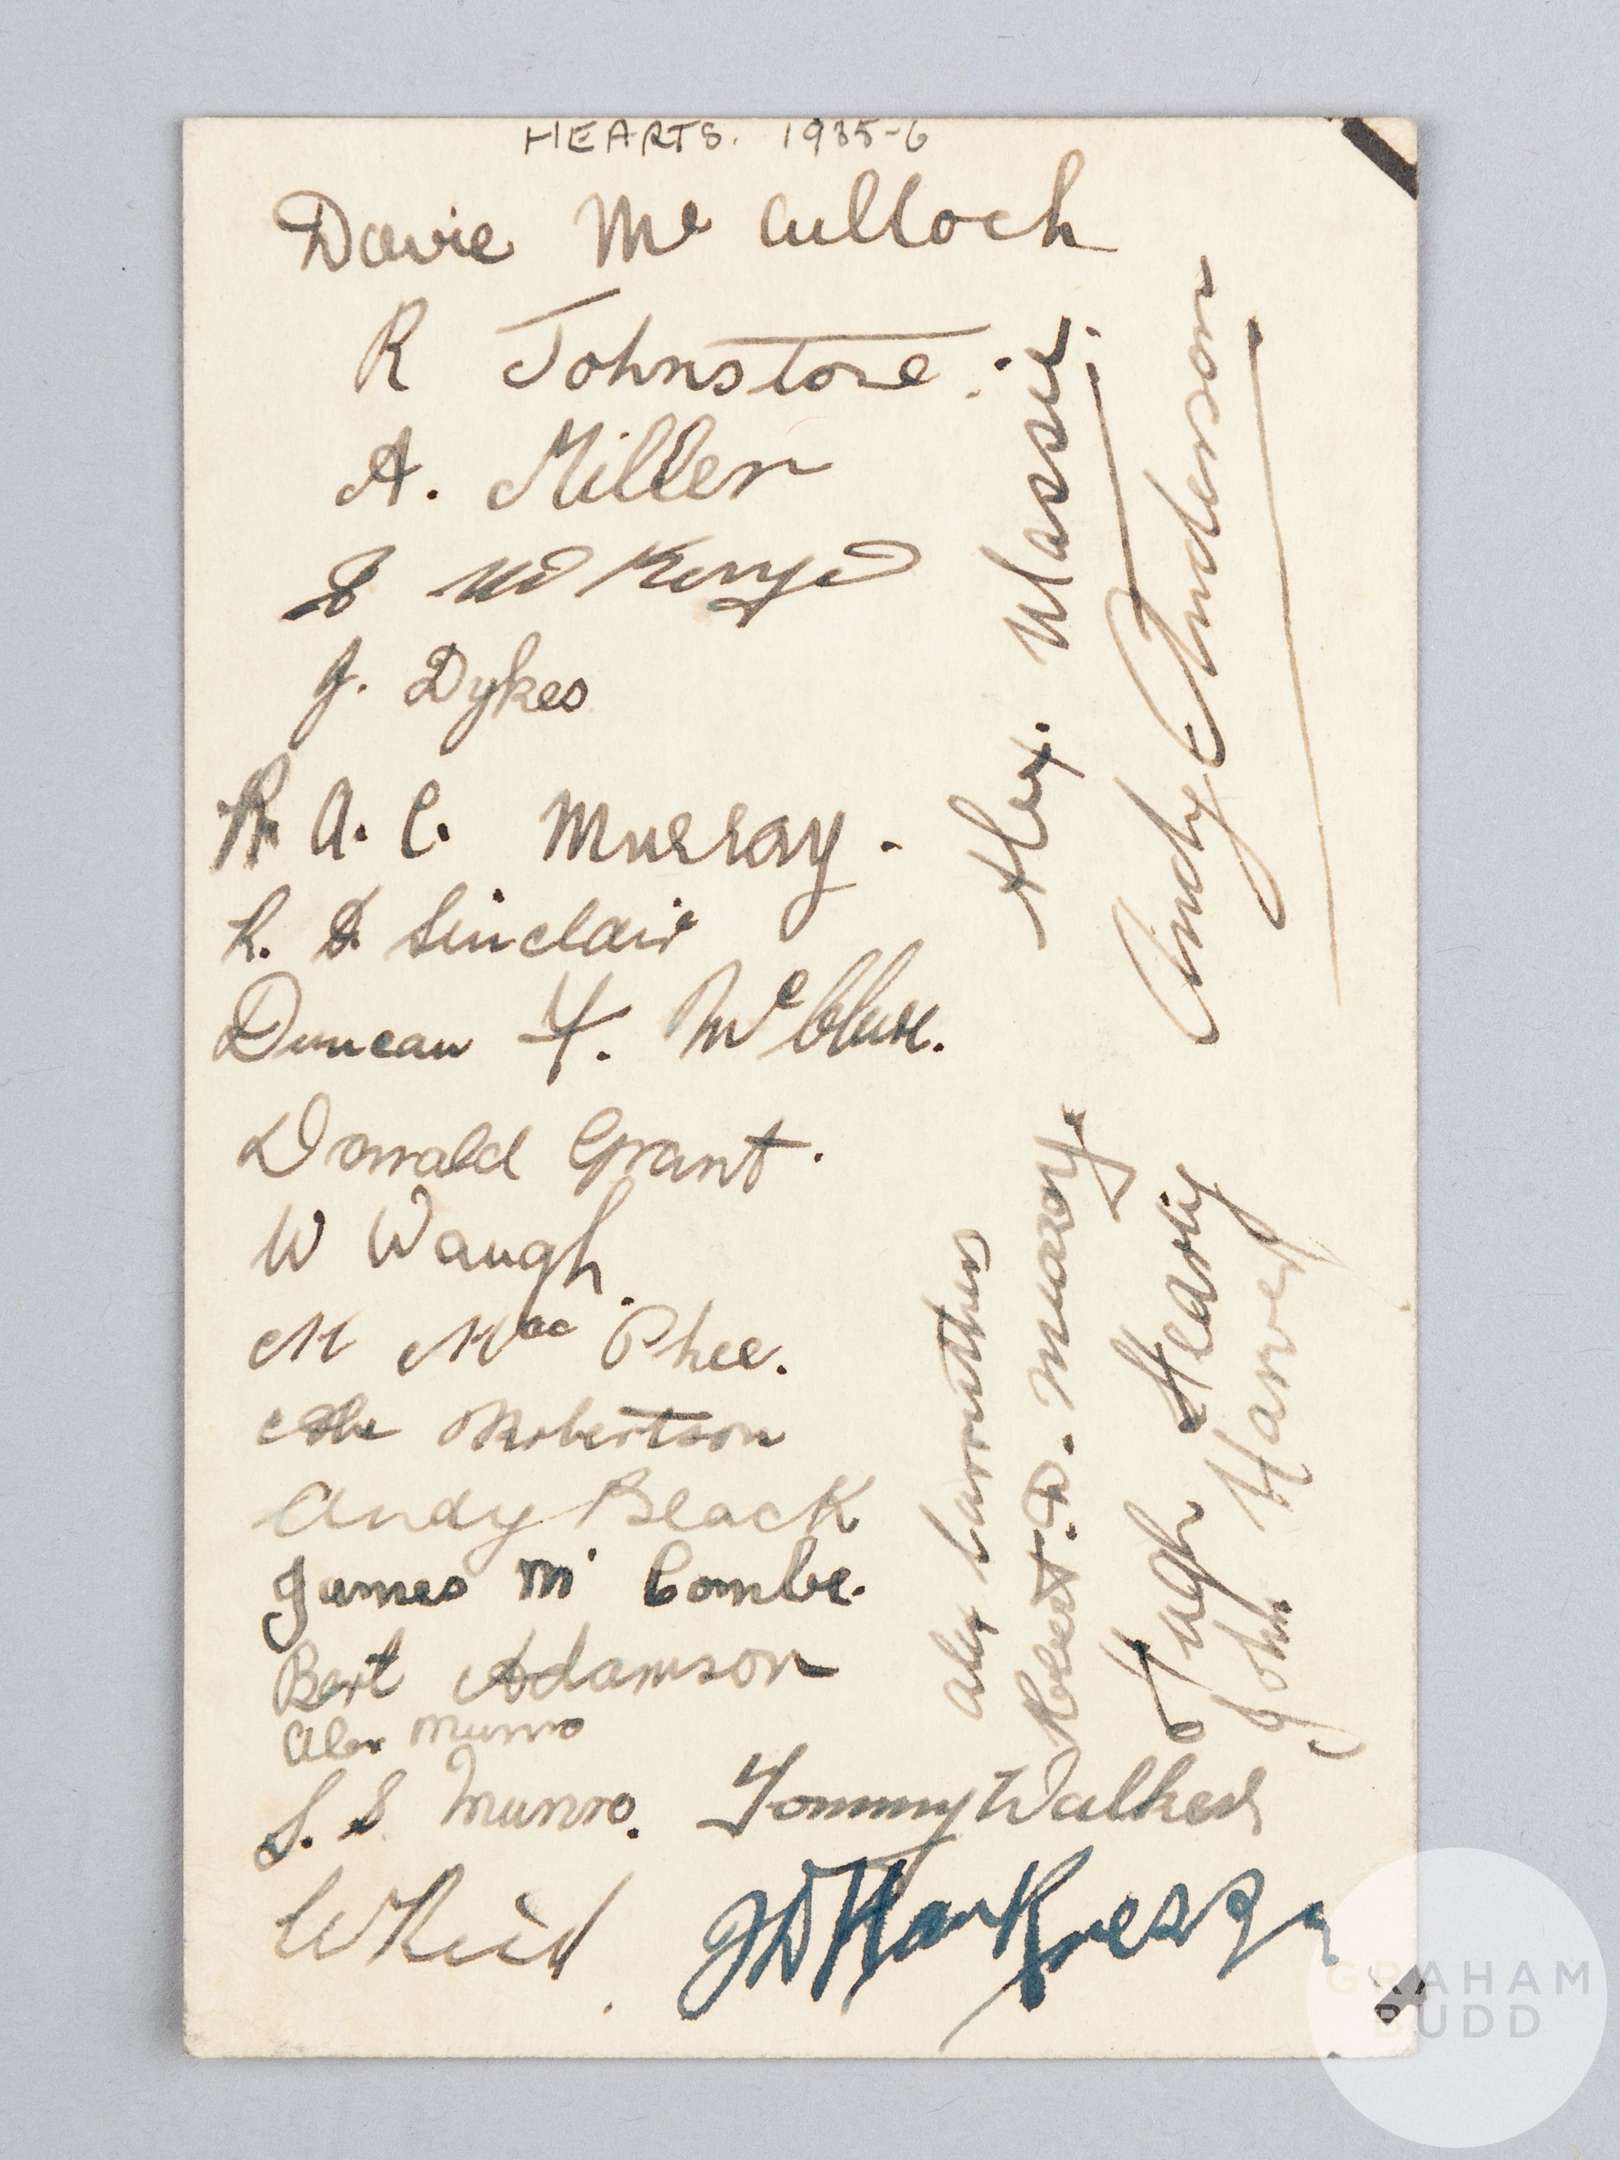 HEARTS. 1935-6
Davie Mc Culloch
R Johnstone.
A. Miller
J. Dykes
A. C. Murray.
R. D Sinclair
Duncan Y. McClure.
Donald Grant.
W Waugh.
M Mac Phee.
Robertson
Andy Black
James Mc Combe.
Bert Adamson
Alex Munro
S. S Munro.
W Reid
Alex. Massie.
Andy Anderson
Alex Carruthers
Robert
John Harvey
Hugh
Tommy Walker
GRAHAM
BUDD